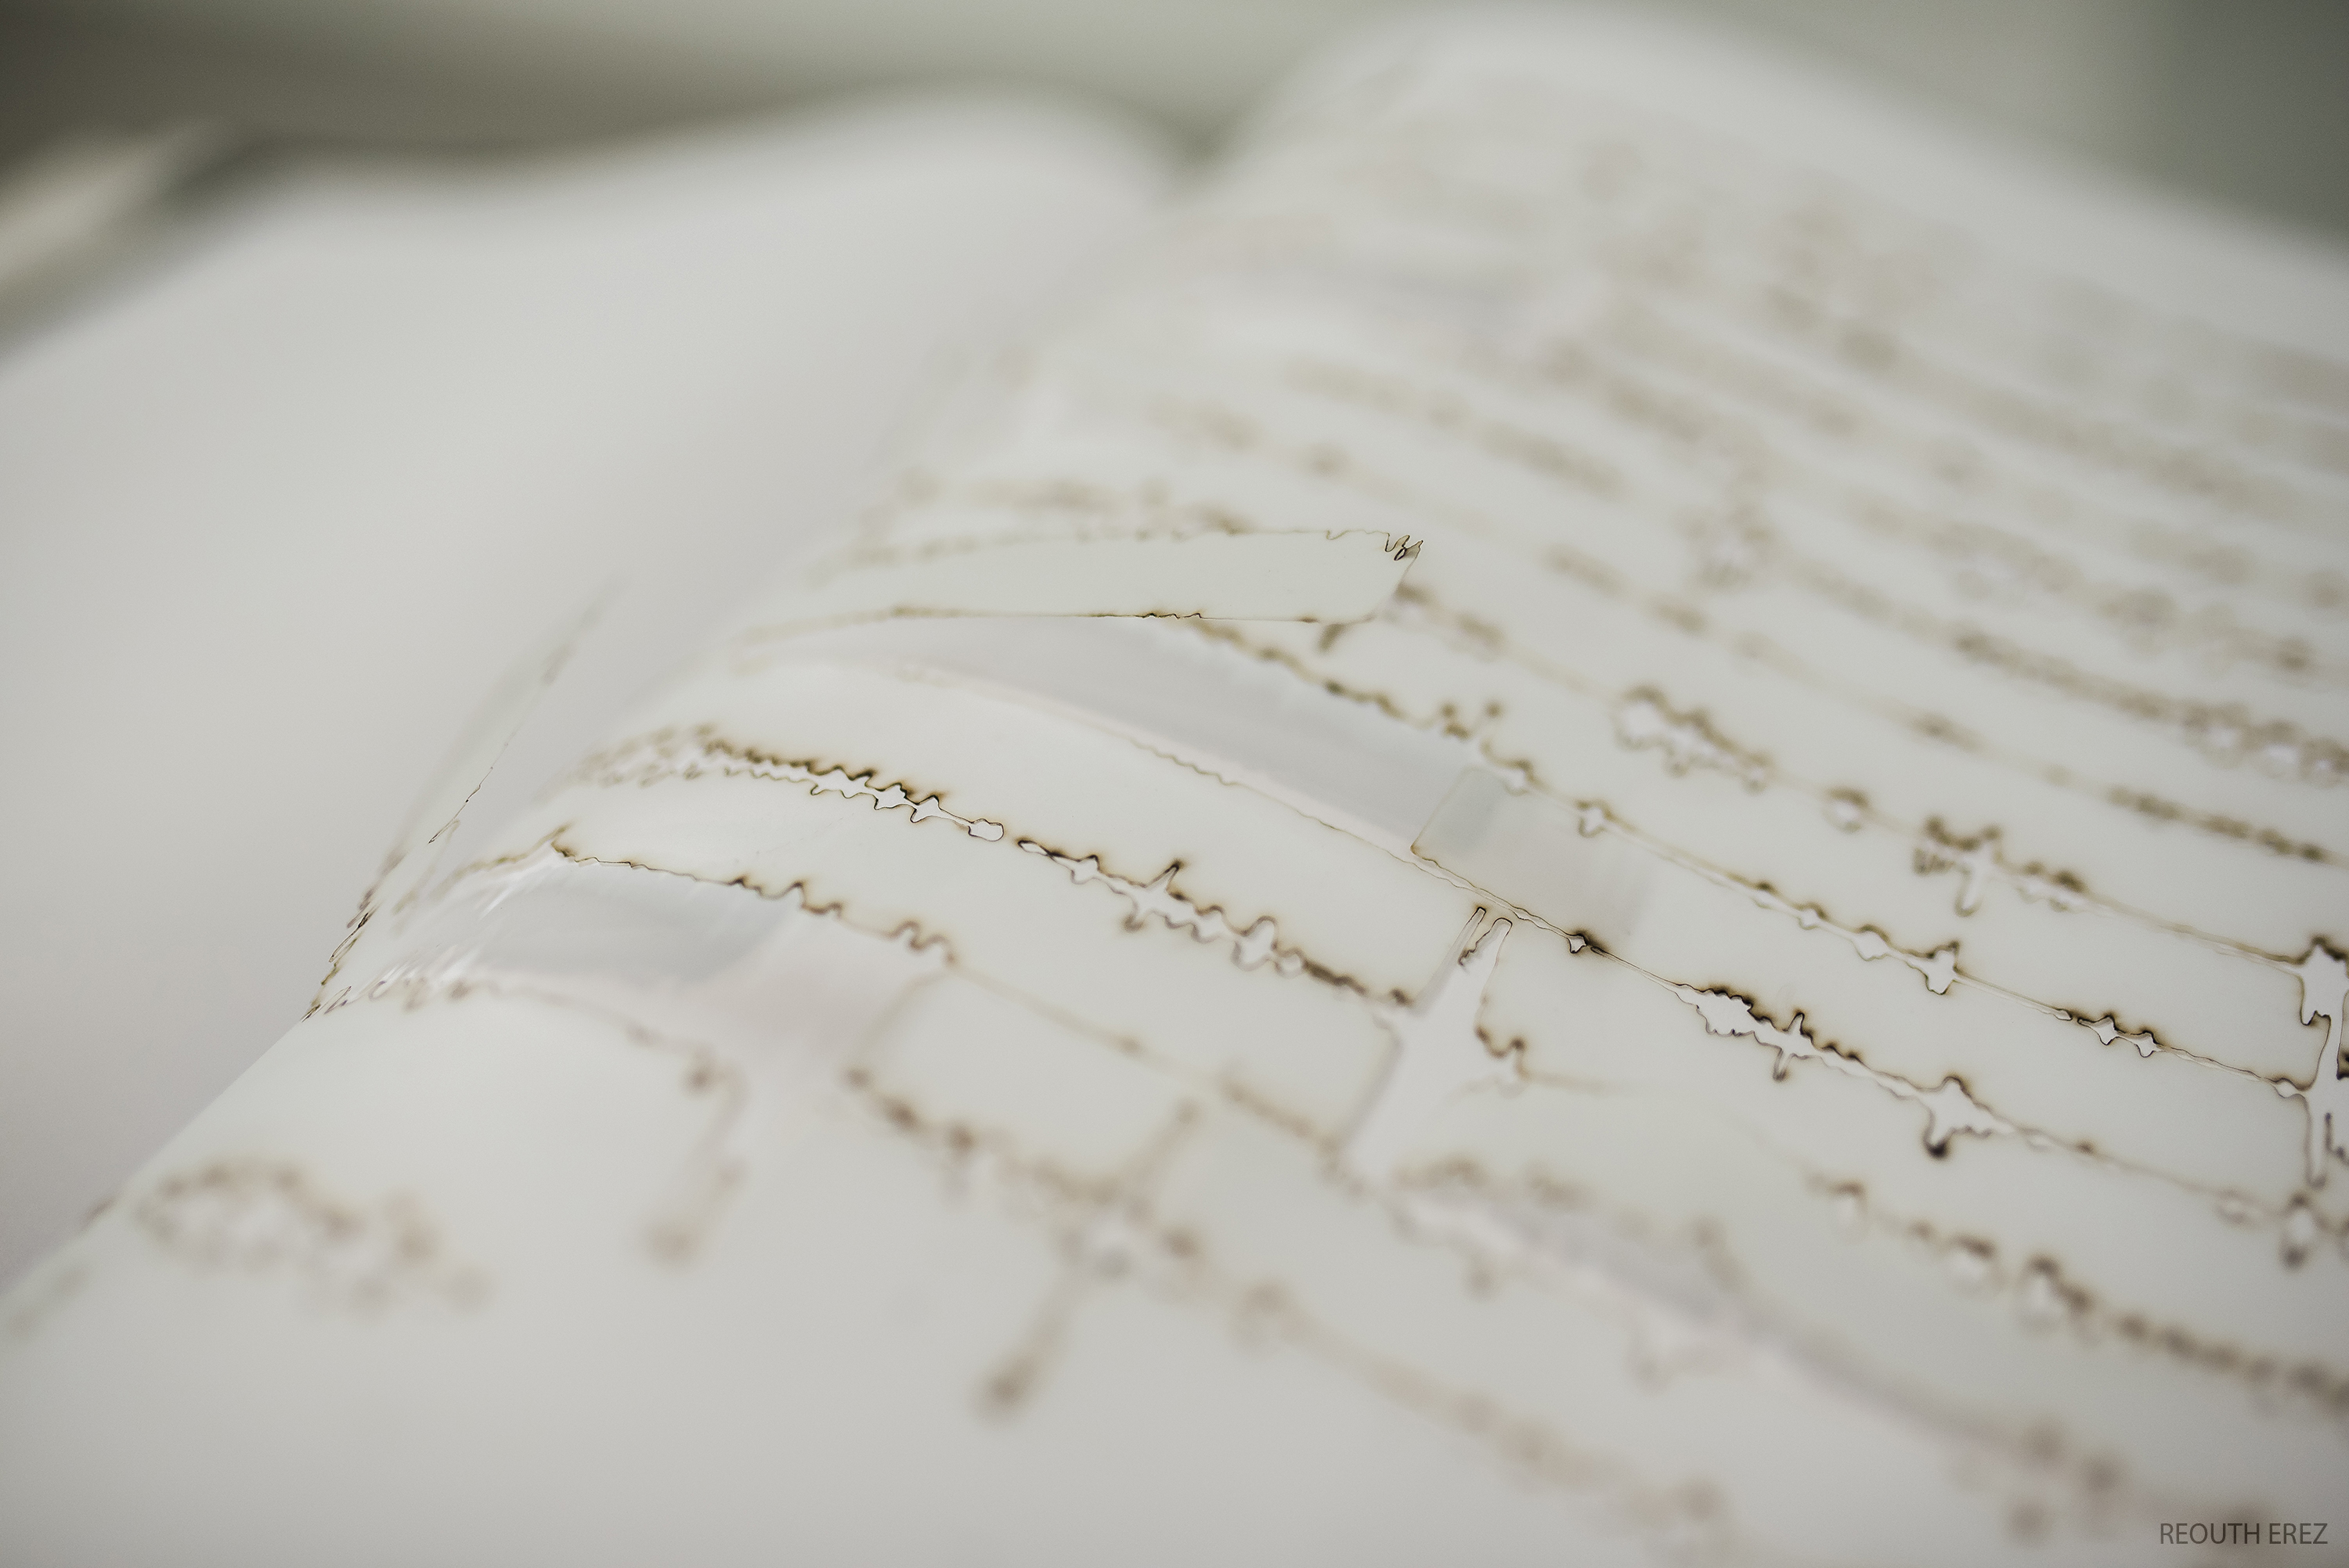 REOUTH EREZ